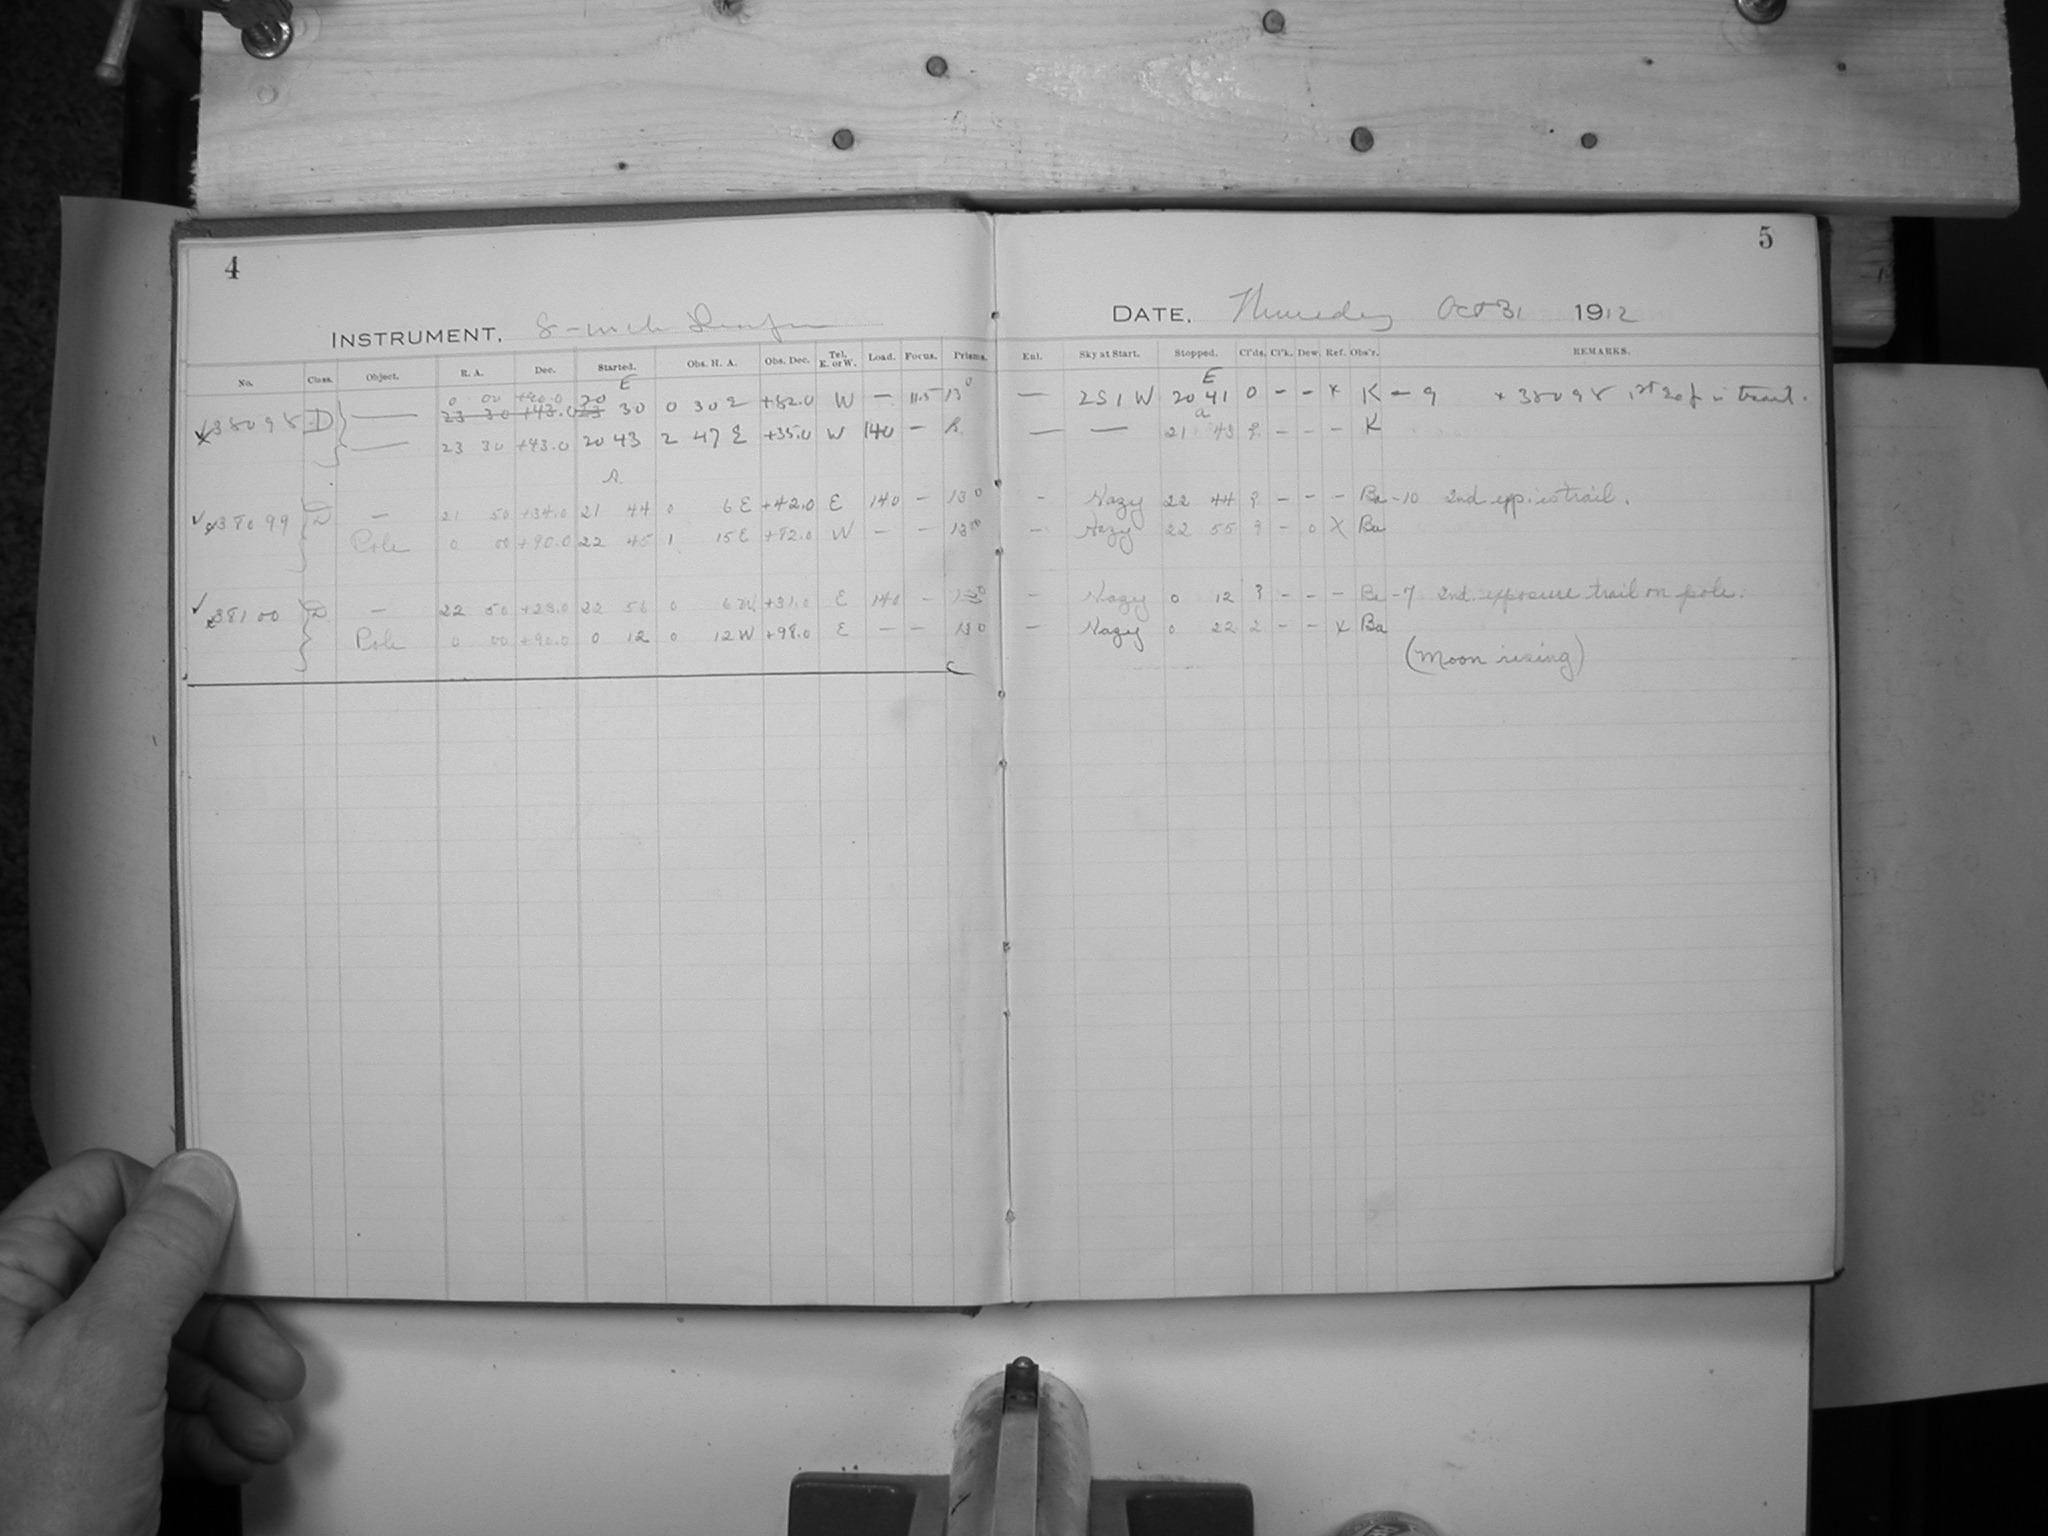 4
INSTRUMENT. 8-inch
No. Class. Object. R. A. Dec. Started. Obs. H. A. Obs. Dec. Tel. E. or W. Load. Focus. Prisms.
E
0 00 +90.0 20
38098 D — 23 30 +43.0 23 30 0 30 +82.0 W — 11.5 13°
— 23 30 +43.0 20 43 2 47 E +35.0 W 140 —
38099 D — 21 50 +34.0 21 44 0 6 E +42.0 E 140 — 13°
Pole 0 00 +90.0 22 45 1 15 E +82.0 W — — 13°
38100 D — 22 50 +23.0 22 56 0 6 W +31.0 E 140 —
Pole 0 00 +90.0 0 12 0 12 W +98.0 E — — 13°
5
DATE. Thursday Oct 31 1912
Enl. Sky at Start. Stopped. Cl'ds. Cl'k. Dew. Ref. Obs'r. REMARKS.
E
— 2S1W 20 41 0 — — x K — 9 x 38098 1st in trail.
a
— — 21 43 — — — K
— Hazy 22 44 ? — — — Ba — 10 2nd exp. is trail.
— Hazy 22 55 ? — 0 x Ba
— Hazy 0 12 ? — — — Ba — 7 2nd exposure trail on pole.
— Hazy 0 22 2 — — x Ba
(Moon rising)